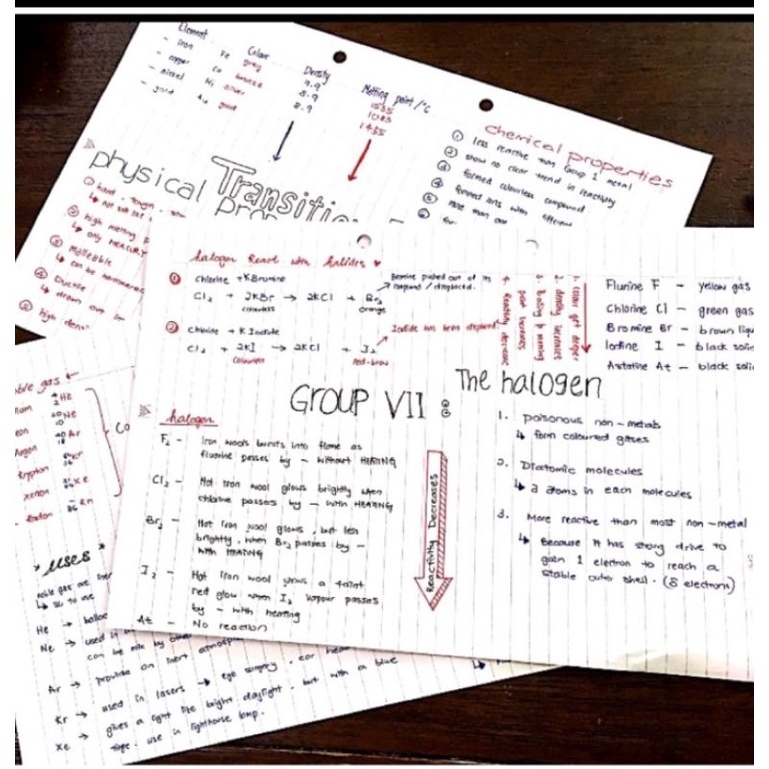 Element Colour Density Melting point /°C
- iron Fe grey 7.9 1535
- copper Cu bronze 8.9 1083
- nickel Ni silver 8.9 1455
- gold Au gold
chemical properties
① less reactive than Group 1 metal
② show no clear trend in reactivity
③ formed colourless compound
④ formed ions with different
⑤ more than one
⑥ for
physical Transitio
prop
① hard - tough -
↳ not
② high melting p
↳ only MERCURY
③ Malleable
↳ can be hammered
④ Ductile
↳ drawn out
⑤ high dens
halogen React with halides ♥
① chlorine + KBromine
Cl₂ + 2KBr → 2KCl + Br₂
colourless orange
Bromine pushed out of its
compound / displaced.
② Chlorine + K Iodide
Cl₂ + 2KI → 2KCl + I₂
colourless red-brow
Iodide has been displaced
1. colour get deeper
2. density increases
3. Boiling & melting
point increases
4. Reactivity decrease
Flurine F - yellow gas
Chlorine Cl - green gas
Bromine Br - brown liqu
Iodine I - black soli
Astatine At - black soli
GROUP VII : The halogen
halogen
F₂ - Iron wools bursts into flame as
fluorine passes by - without HEATING
Cl₂ - Hot iron wool glows brightly when
chlorine passes by - with HEATING
Br₂ - Hot iron wool glows, but less
brightly, when Br₂ passes by -
with HEATING
I₂ - Hot iron wool shows a faint
red glow when I₂ vapour passes
by - with heating
At - No reaction
Reactivity Decreases
1. poisonous non-metals
↳ form coloured gases
2. Diatomic molecules
↳ 2 atoms in each molecules
3. More reactive than most non-metal
↳ Because it has strong drive to
gain 1 electron to reach a
stable outer shell. (8 electrons)
ble gas
ium ⁴₂He
eon ²⁰₁₀Ne
Argon ⁴⁰₁₈Ar
krypton ₃₆Kr
xenon ₅₄Xe
Radon ₈₆Rn
Co
* uses *
noble gas are iner
↳ so to use
He → balloo
Ne → used in
can be mix by other
Ar → provide an inert atmosp
Kr → used in lasers → eye surgery, car hea
Xe → gives a light like bright daylight - but with a blue
tinge. use in lighthouse lamp.